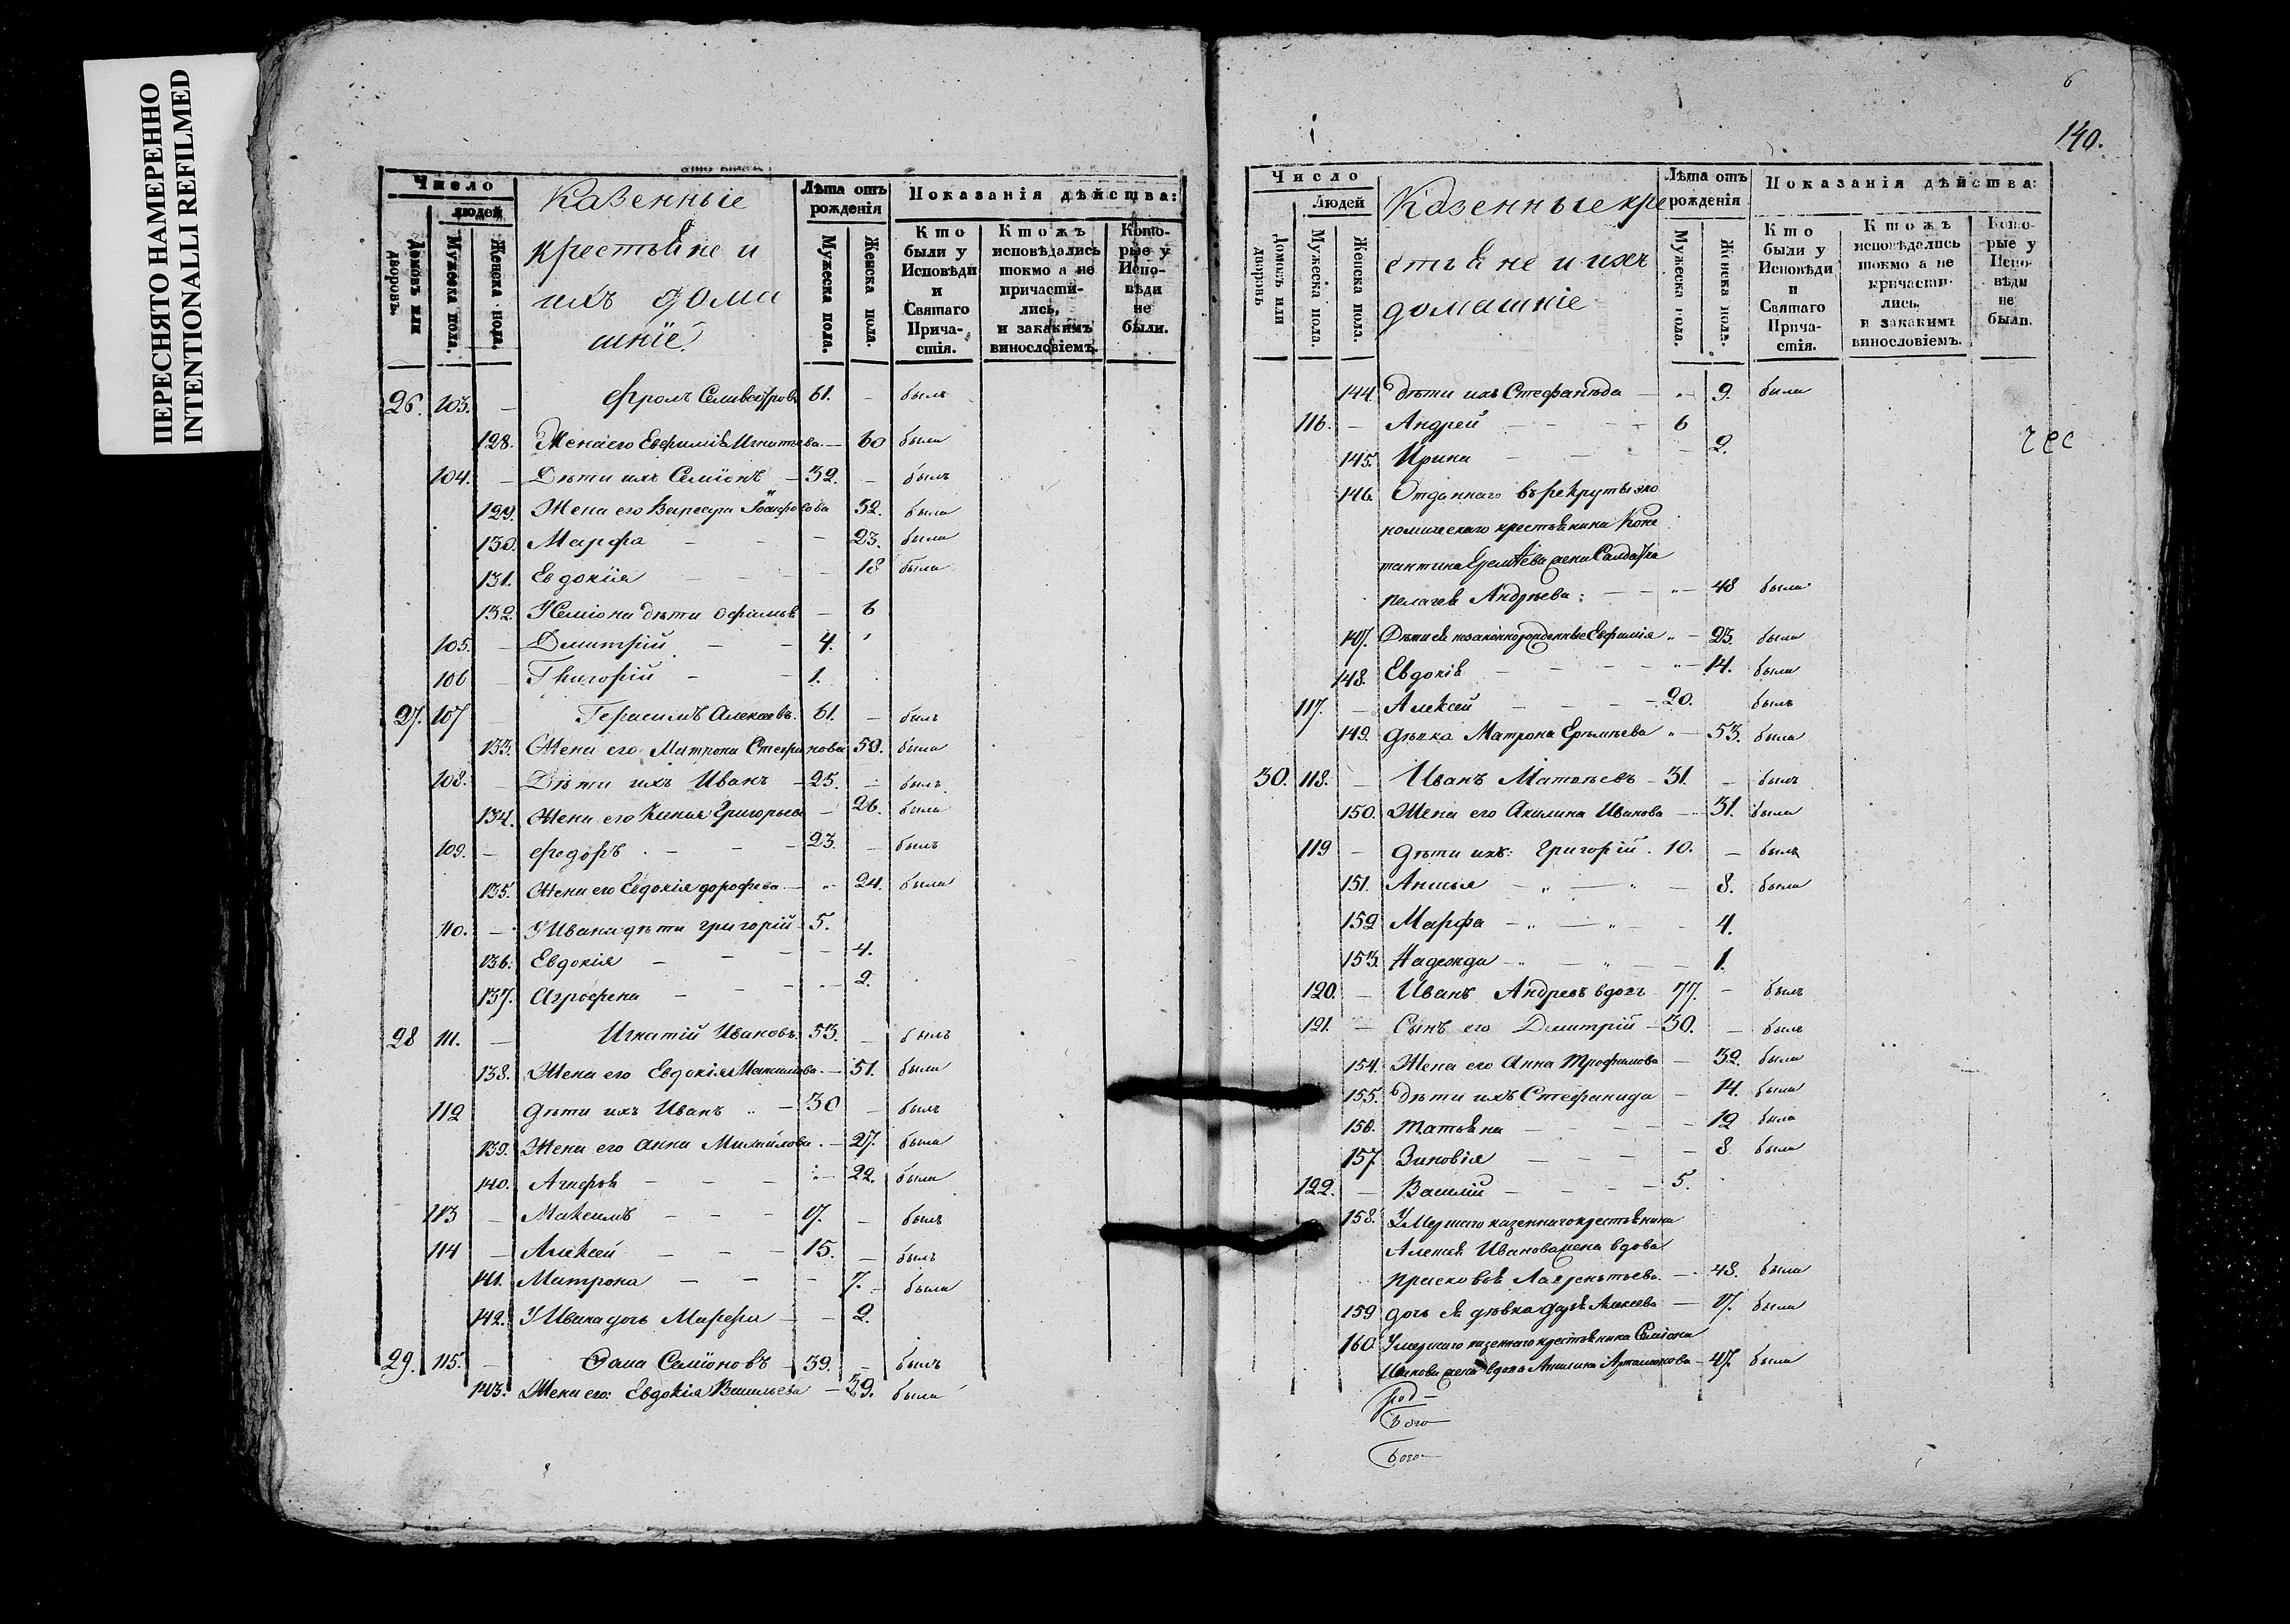 ПЕРЕСНЯТО НАМЕРЕННО
INTENTIONALLI REFILMED
Число
людей
Домовъ или дворовъ.
Мужеска пола.
Женска пола.
Казенные
крестьяне и
ихъ дома
шніе.
Лѣта отъ рожденія
Мужеска пола.
Женска пола.
Показанія дѣйства:
Кто были у Исповѣди и Святаго Причастія.
Кто жъ исповѣдались токмо а не причастились, и закакимъ винословіемъ.
Которые у Исповѣди не были.
26. 103. — Фролъ Селивестровъ 61. — былъ
128. Жена его Евфимія Игнатьева — 60 была
104. — Дѣти ихъ Семіонъ — 32. — былъ
129. Жена его Варвара 32. была
130. Марфа — — — 23. была
131. Евдокія — — — 18 была
132. У Семіона дѣти — 6
105. — Дмитрій — — 4.
106 — Григорій — — 1.
27. 107 — Герасимъ Алексеевъ. 61. — былъ
133. Жена его Матрона Стефанова 59. была
108. — Дѣти ихъ Иванъ — 25. — былъ
134. Жена его Ксенія Григорьева — 26. была
109. — Федоръ — — — 23. — былъ
135. Жена его Евдокія дорофеева — 24. была
110. — У Ивана дѣти григорій 5.
136. Евдокія — — — 4.
137. Агрофена — — — 2.
28 111. — Игнатій Ивановъ. 53. — былъ
138. Жена его Евдокія Максимова. — 51. была
112 дѣти ихъ Иванъ — 30 — былъ
139. Жена его анна Михайлова. — 27. была
140. Агафья — — — 22. была
113 — Максимъ — — — 17. — былъ
114 — Алексей — — — 15. — былъ
141. Матрона — — — 7. была
142. У Ивана дочь Марфа — — 2.
29. 115. — Фома Семіоновъ — 39. — былъ
143. Жена его: Евдокія Васильева — 39. была
6
140.
Число
Людей
Домовъ или дворовъ
Мужеска пола.
Женска пола.
Казенные кре
стьяне и ихъ
домашніе
Лѣта отъ рожденія
Мужеска пола.
Женска пола.
Показанія дѣйства:
Кто были у Исповѣди и Святаго Причастія.
Кто жъ исповѣдались токмо а не причастились, и закакимъ винословіемъ.
Которые у Исповѣди не были.
144. дѣти ихъ Стефанида — 9. была
116. — Андрей — — — 6
145. Ирина — — — 2.
146. Отданнаго въ рекруты эко
номическаго крестьянина Конс
тантина жена Салдатка
пелагея Андреева: — — 48 была
147. Дѣти ея незаконнорожденные Евфимія — 23. была
148. Евдокія — — — 14. была
117. — Алексей — — — 20. былъ
149. дѣвка Матрона — 53. была
30. 118. — Иванъ Матвеевъ — 31. — былъ
150. Жена его Акилина Иванова — 31. была
119 — дѣти ихъ: григорій. 10. — былъ
151. Анисья — — — 8. была
152 Марфа — — — 4.
153. Надежда — — — 1.
120. — Иванъ Андреевъ вдовъ 77. — былъ
121. — Сынъ его Димитрій — 30. — былъ
154. Жена его Анна Трофимова — 32. была
155. дѣти ихъ Стефанида — 14. была
156. татьяна — — — 12 была
157. Зиновія — — — 8. была
122. — Василій — — — 5.
158. Умершаго казеннаго крестьянина
Алексея Иванова жена вдова
прасковья Лаврентьева. — 48. была
159 дочь ея дѣвка дарья Алексеева — 17. была
160. Умершаго казеннаго крестьянина Семіона
Иванова жена вдова Акилина Артамонова — 47. была